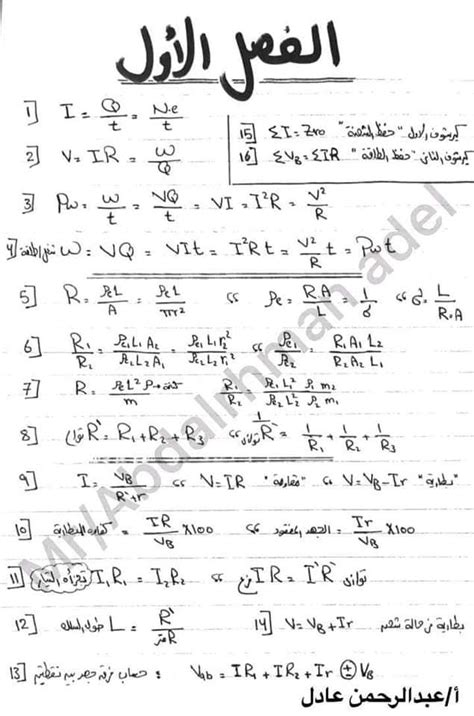 الفصل الأول
1] I = Q/t = N.e/t
2] V = IR = W/Q
15] ΣI = Zero "كيرشوف الاول "حفظ الشحنة
16] ΣVB = ΣIR "كيرشوف الثاني "حفظ الطاقة
3] Pw = W/t = VQ/t = VI = I²R = V²/R
4] W = VQ = VIt = I²Rt = V²/R t = Pw t
5] R = ρeL/A = ρeL/πr² ،، ρe = RA/L = 1/σ ،، σ = L/R.A
6] R1/R2 = ρe1L1A2/ρe2L2A1 = ρe1L1r2²/ρe2L2r1² ،، ρe1/ρe2 = R1A1L2/R2A2L1
7] R = ρeL²ρ/m كثافة R1/R2 = ρe1L1²ρ1m2/ρe2L2²ρ2m1
8] توالي R` = R1 + R2 + R3 ،، توازي 1/R` = 1/R1 + 1/R2 + 1/R3
9] I = VB/R`+r ،، V = IR "مقاومة" ،، V = VB - Ir "بطارية"
10] كفاءة البطارية = IR/VB x100 ،، الجهد المفقود = Ir/VB x100
11] تجزأه التيار I1R1 = I2R2 ،، فرع IR = I`R` توازي
12] طول السلك L = R`/R متر
14] V = VB + Ir بطارية في حالة شحن
13] حساب فرق جهد بين نقطتين : Vab = IR1 + IR2 + Ir ± VB
أ/عبدالرحمن عادل
Mr/Abdalrhman adel